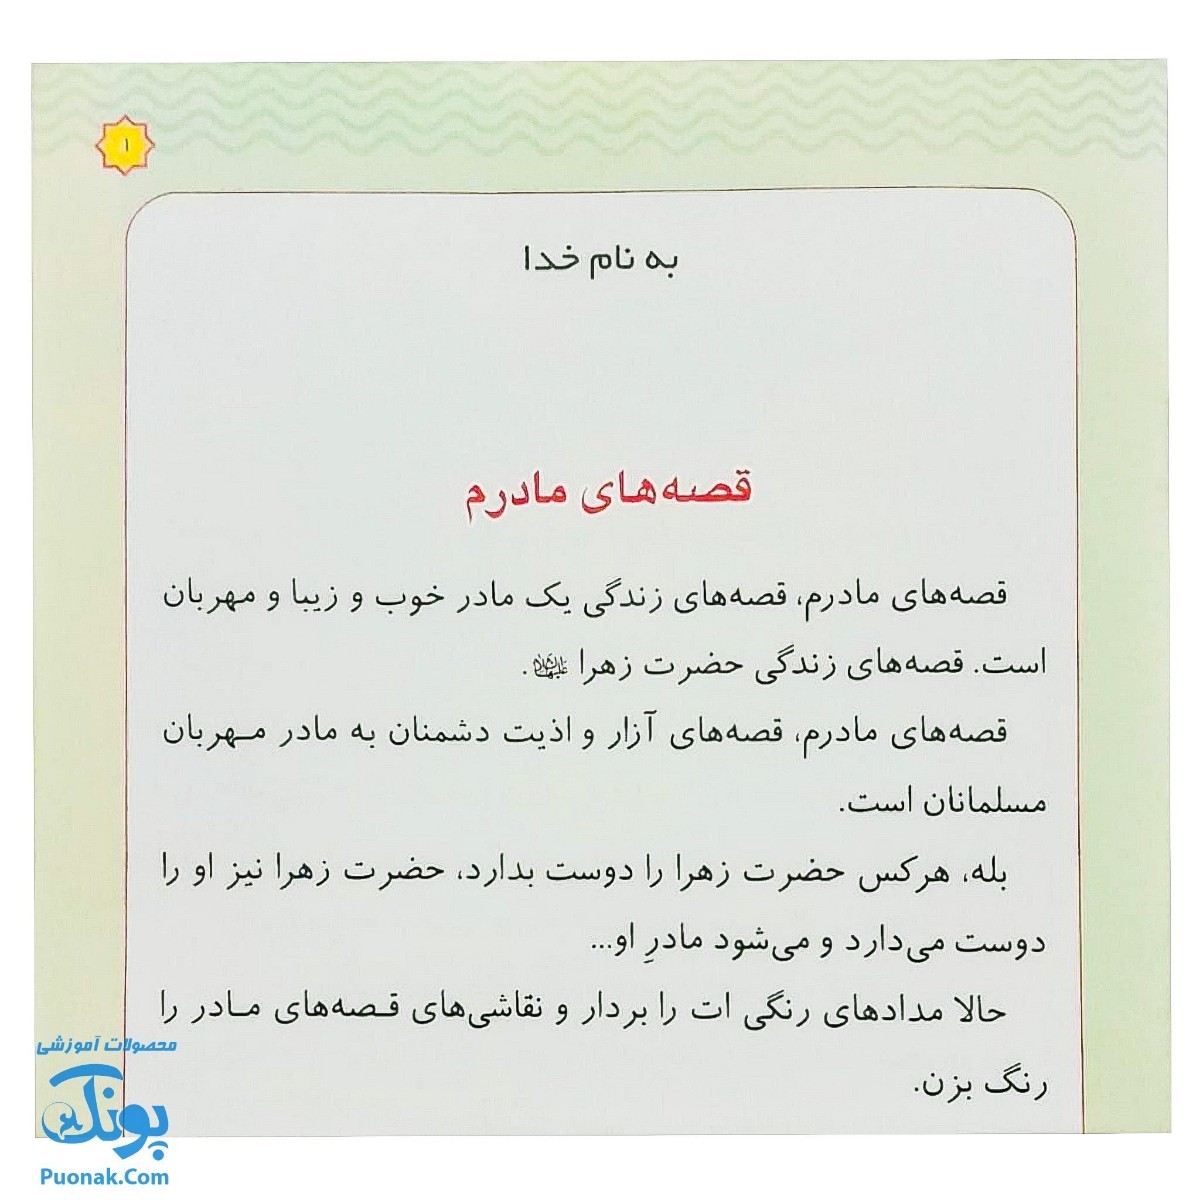 ۱
به نام خدا
قصه‌های مادرم
قصه‌های مادرم، قصه‌های زندگی یک مادر خوب و زیبا و مهربان
است. قصه‌های زندگی حضرت زهرا علیهاالسلام.
قصه‌های مادرم، قصه‌های آزار و اذیت دشمنان به مادر مهربان
مسلمانان است.
بله، هرکس حضرت زهرا را دوست بدارد، حضرت زهرا نیز او را
دوست می‌دارد و می‌شود مادرِ او...
حالا مدادهای رنگی ات را بردار و نقاشی‌های قصه‌های مادر را
رنگ بزن.
محصولات آموزشی
پونک
Puonak.Com